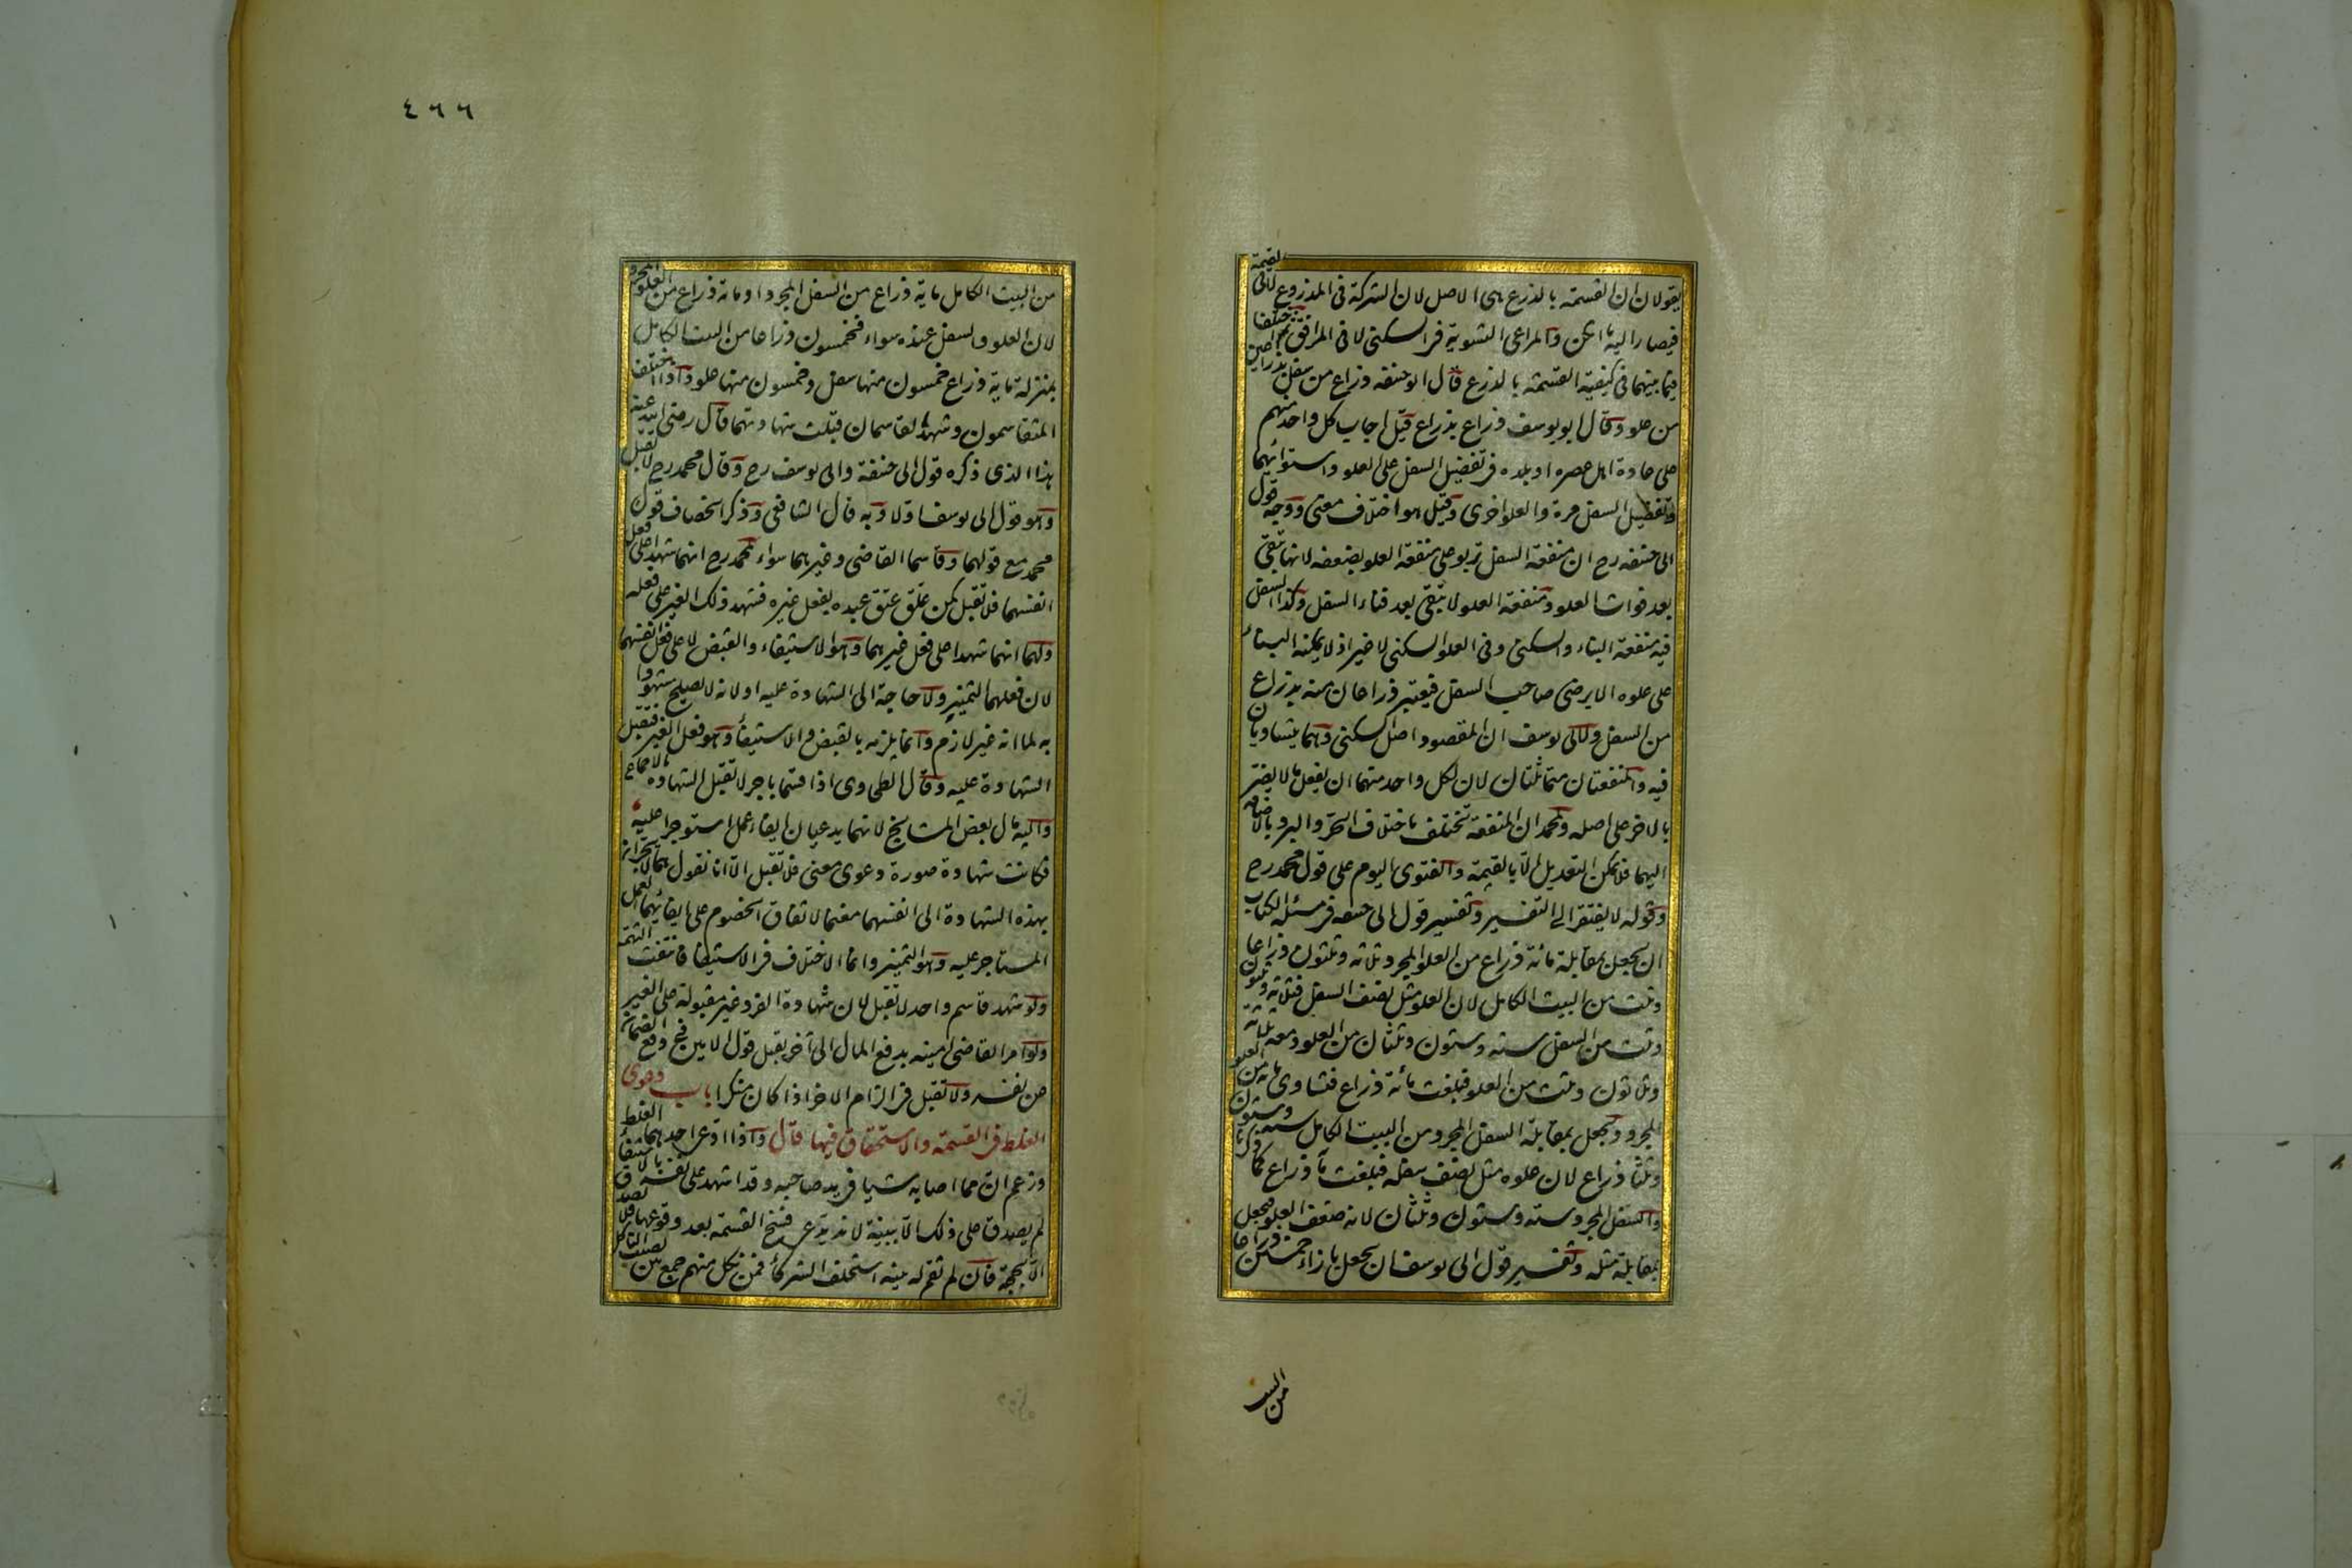 يقولان ان القسمة بالذرع هى الاصل لان الشركة فى المذروع لا فى القيمة
فيصار اليه ما امكن والمراعى التسوية فى السكنى لا فى المرافق ثم اختلفا
فيما بينهما فى كيفية القسمة بالذرع قال ابو حنيفه ذراع من سفل بذراعين
من علو وقال ابو يوسف ذراع بذراع قيل اجاب كل واحد منهم
على عادة اهل عصره او بلده فى تفضيل السفل على العلو واستوائهما
وتفضيل السفل مرة والعلو اخرى وقيل هو اختلاف معنى ووجه قول
ابى حنيفه رح ان منفعة السفل تربو على منفعة العلو بضعفه لانها تبقى
بعد فوات العلو ومنفعة العلو لا تبقى بعد فناء السفل وكذا السفل
فيه منفعة البناء والسكنى وفى العلو السكنى لا غير اذ لا يمكنه البناء
على علوه الا برضى صاحب السفل فيعتبر ذراعان منه بذراع
من السفل ولابى يوسف ان المقصود اصل السكنى وهما يتساويان
فيه والمنفعتان متماثلتان لان لكل واحد منهما ان يفعل ما لا يضر
بالاخر على اصله ولمحمد ان المنفعة تختلف باختلاف الحر والبرد بالاضافة
اليهما فلا يمكن التعديل الا بالقيمة والفتوى اليوم على قول محمد رح
وقوله لا يفتقر الى التفسير وتفسير قول ابى حنيفه فى مسئلة الكتاب
ان يجعل بمقابلة مائة ذراع من العلو المجرد ثلاثه وثلثون ذراعا
وثلث من البيت الكامل لان العلو مثل نصف السفل فثلاثة وثلثون
وثلث من السفل سته وستون وثلثان من العلو ومعه ثلاثة
وثلاثون وثلث من العلو فبلغت مائة ذراع فتساوى مائة من العلو
المجرد ويجعل بمقابلة السفل المجرد من البيت الكامل سته وستون
وثلثا ذراع لان علوه مثل نصف سفله فبلغت مائة ذراع كما ذكرنا
والسفل المجرد سته وستون وثلثان لانه ضعف العلو فيجعل
بمقابلة مثله وتفسير قول ابى يوسف ان يجعل بازاء خمسين ذراعا
من البيت
٤٦٦
من البيت الكامل مايه ذراع من السفل المجرد او مائة ذراع من العلو المجرد
لان العلو والسفل عنده سواء فخمسون ذراعا من البيت الكامل
بمنزلة مايه ذراع خمسون منها سفل وخمسون منها علو واذا اختلف
المتقاسمون وشهد القاسمان قبلت شهادتهما قال رضى الله عنه
هذا الذى ذكره قول ابى حنيفة وابى يوسف رح وقال محمد رح لا تقبل
وهو قول ابى يوسف اولا وبه قال الشافعى وذكر الخصاف قول
محمد مع قولهما وقاسما القاضى وغيرهما سواء لمحمد رح انهما شهدا على فعل
انفسهما فلا تقبل كمن علق عتق عبده بفعل غيره فشهد ذلك الغير على فعله
ولهما انهما شهدا على فعل غيرهما وهو الاستيفاء والقبض لا على فعل انفسهما
لان فعلهما التمييز ولا حاجة الى الشهادة عليه او لانه لا يصلح مشهودا
به لما انه غير لازم وانما يلزمه بالقبض والاستيفاء وهو فعل الغير فتقبل
الشهادة عليه وقال الطحاوى اذا قسما باجر لا تقبل الشهادة بالاجماع
واليه مال بعض المشايخ لانهما يدعيان ايفاء عمل استوجرا عليه
فكانت شهادة صورة ودعوى معنى فلا تقبل الا انا نقول هما لا يجران
بهذه الشهادة الى انفسهما مغنما لاتفاق الخصوم على ايفائهما العمل
المستاجر عليه وهو التمييز وانما الاختلاف فى الاستيفاء فانتفت التهمة
ولو شهد قاسم واحد لا تقبل لان شهادة الفرد غير مقبولة على الغير
ولو امر القاضى امينه بدفع المال الى آخر يقبل قول الامين فى دفع الضمان
عن نفسه ولا تقبل فى الزام الاخر اذا كان منكرا باب دعوى
الغلط فى القسمة والاستحقاق فيها قال واذا ادعى احدهما الغلط
وزعم ان مما اصابه شيا فى يد صاحبه وقد اشهد على نفسه بالاستيفاء
لم يصدق على ذلك الا ببينة لانه يدعى فسخ القسمة بعد وقوعها فلا يصدق
الا بحجة فان لم تقم له بينه استحلف الشركاء فمن نكل منهم جمع بين نصيب الناكل